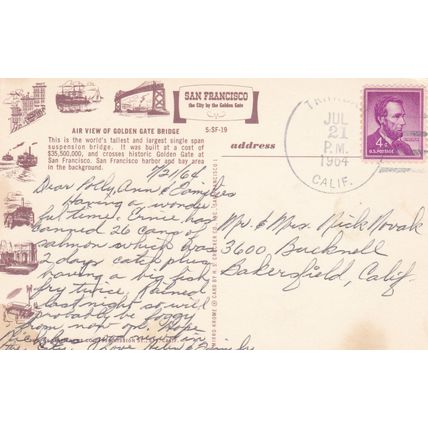 SAN FRANCISCO
the City by the Golden Gate
AIR VIEW OF GOLDEN GATE BRIDGE
This is the world's tallest and largest single span
suspension bridge. It was built at a cost of
$35,500,000, and crosses historic Golden Gate at
San Francisco. San Francisco harbor and bay area
in the background.
S-SF-19
address
JUL
21
P.M.
1964
CALIF.
4¢
U.S. POSTAGE
7/21/64
Dear Polly, Ann & Families
Having a wonder
ful time. Ernie has
canned 26 cans of
salmon which was
2 days catch plus
having a big fish
fry twice. Rained
last night so will
probably be foggy
from now on. Hope
Mr. & Mrs. Nick Novak
3600 Bucknell
Bakersfield, Calif.